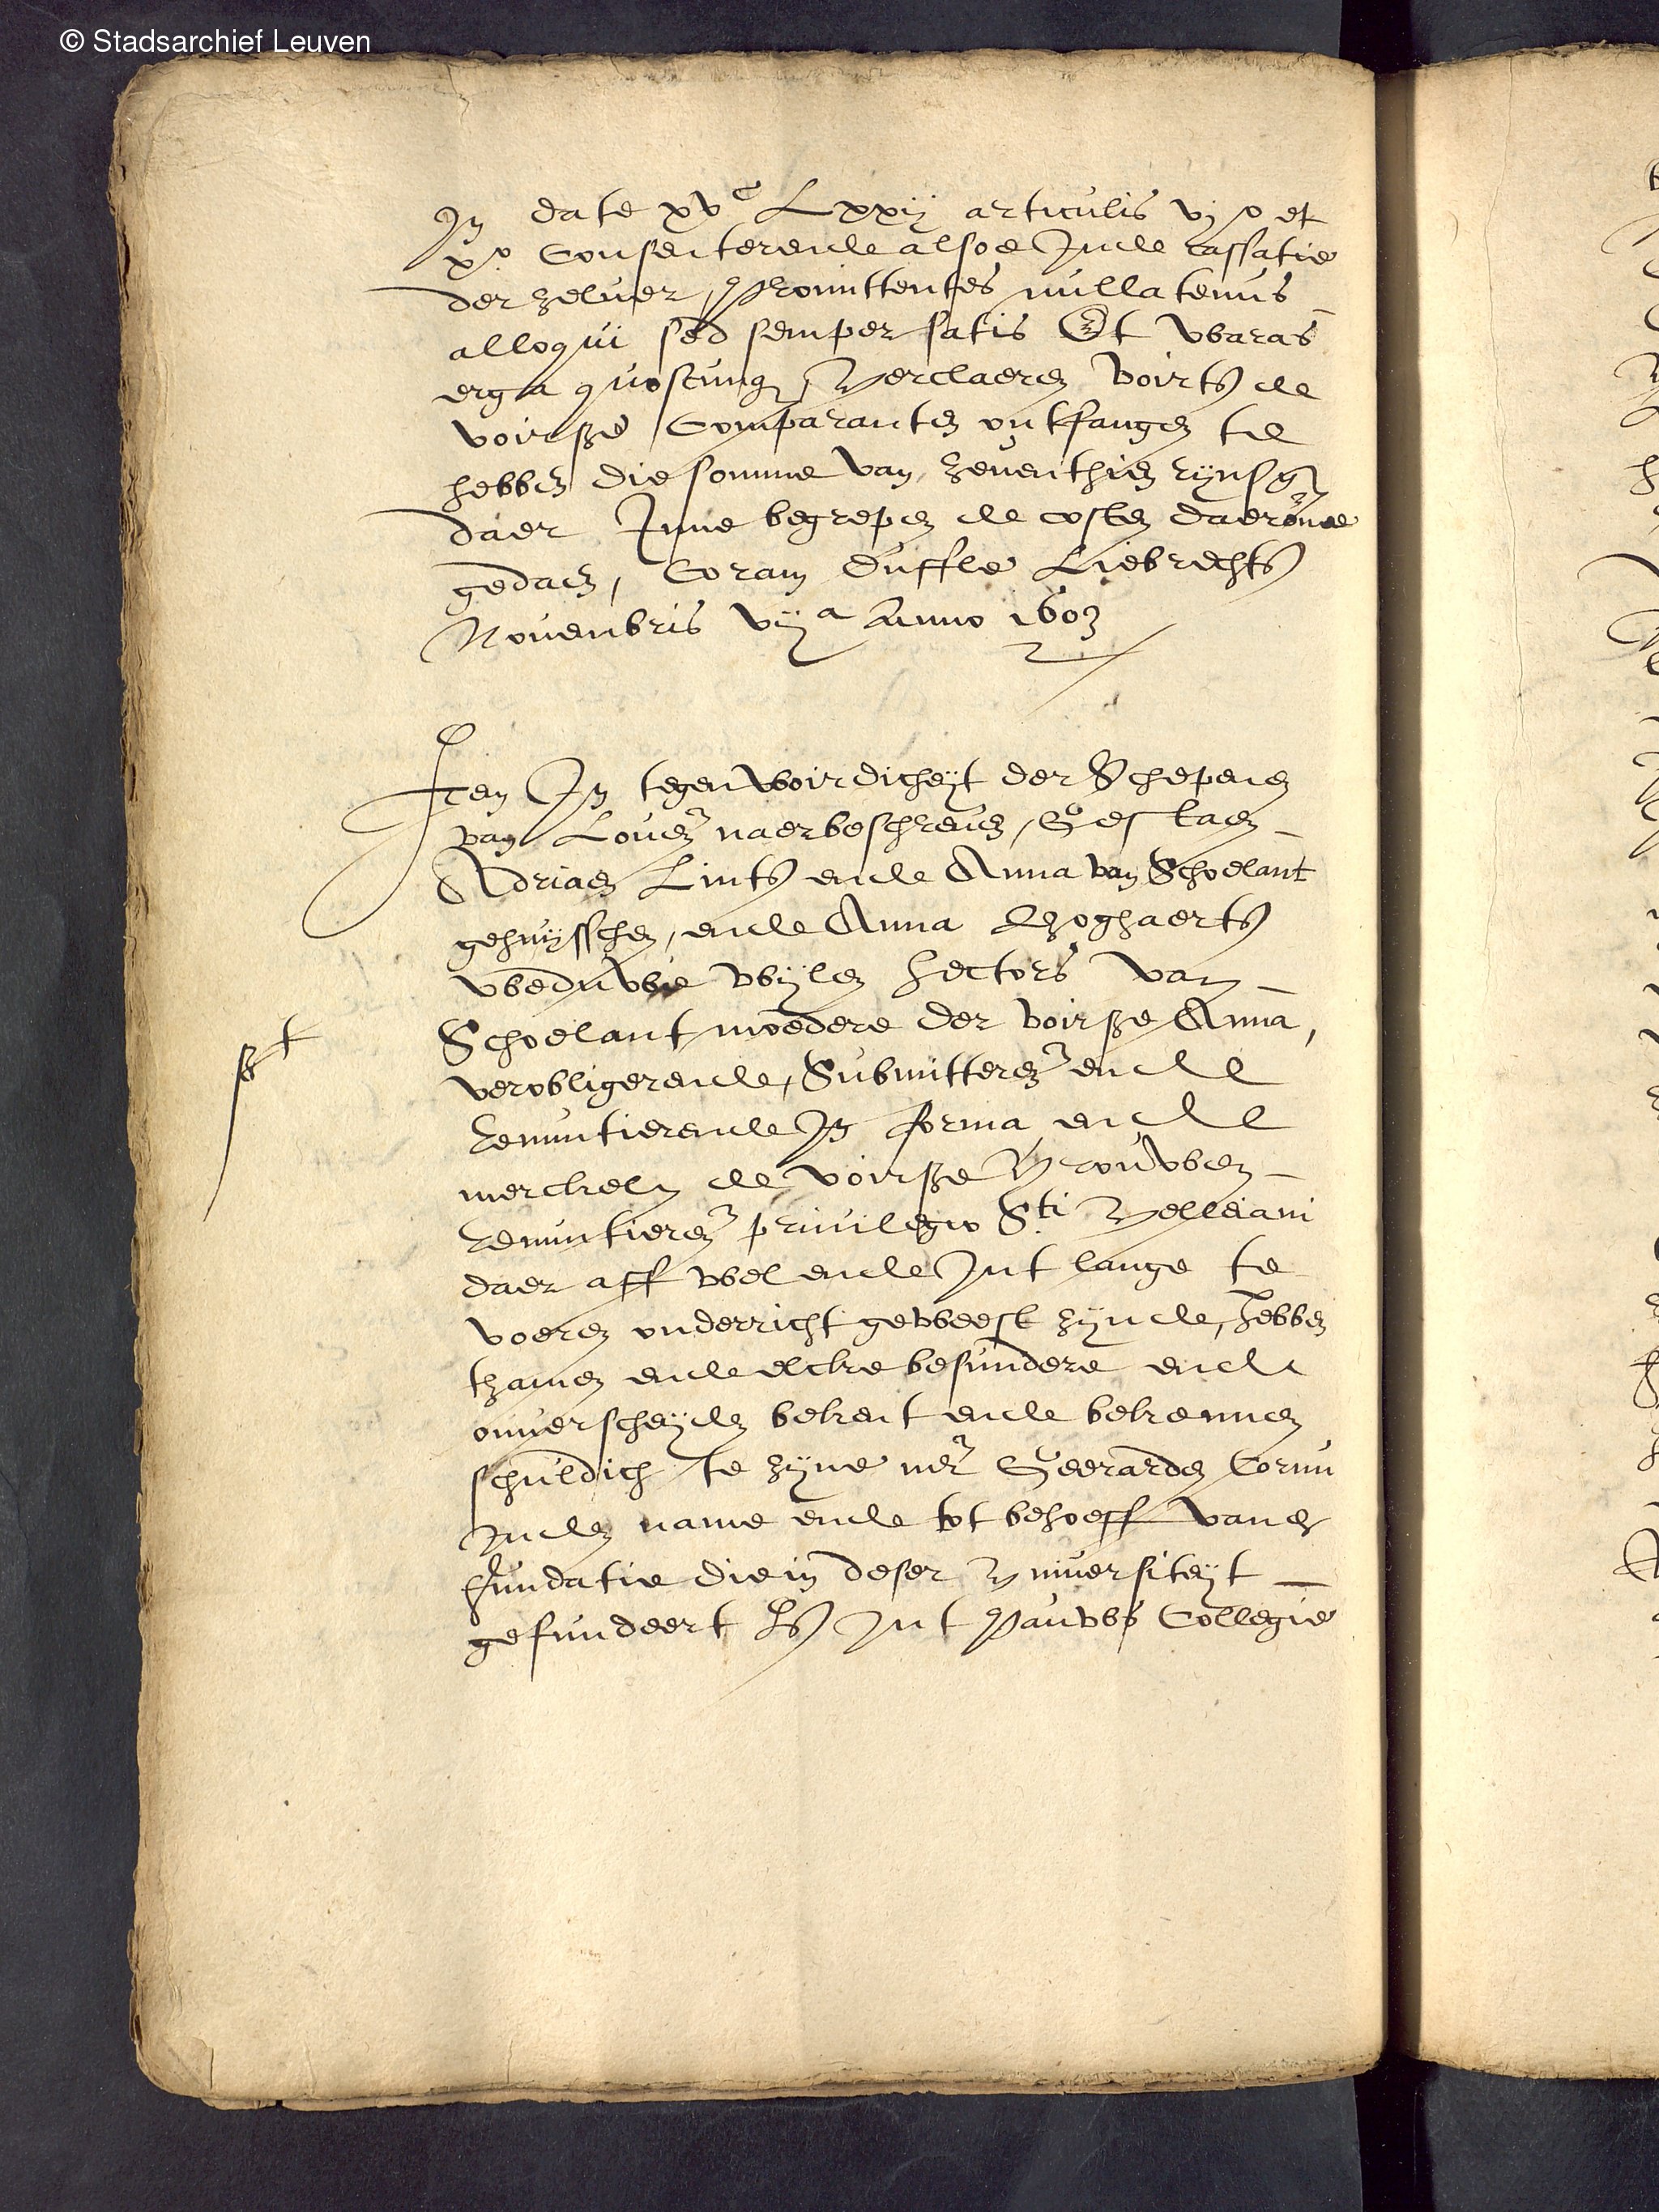 © Stadsarchief Leuven
In date xvc Lxxij articulis vj o et
xo Consenterende alsoe Inde cassatie
der zelver, Promittentes nullatenus
alloqui sed semper satis Et waras
erga quoscunq Verclaeren voirts de
voirsz Comparanten ontfangen te
hebben die somme van zeventhien rynsg
daer Inne begrepen de costen daeromme
gedaen, Coram Duffle Liebrechts
Novenbris vija Anno 1603
Item In tegenwoirdicheyt der Schepenen
van Loven naerbeschreven, Gestaen
Adriaen Lints ende Anna van Schoelant
gehuysschen, ende Anna
weduwe wylen Hectors van
Schoelant moedere der voirsz Anna,
st
verobligerende, Submitteren ende
Renuntierende In forma, ende
merckelyc de voirsz Vrouwen
Renuntieren privilegio Sti Velleiani
daer aff wel ende Int lange te
voeren onderricht geweest zynde, hebben
tzamen ende elcke besundere ende
onverscheyden bekent ende bekennen
schuldich te zyne mr Geerarden Cornu
Inden name ende tot behoeff vande
fundatie die in deser Universiteyt
gefundeert Is Int Pauws Collegie